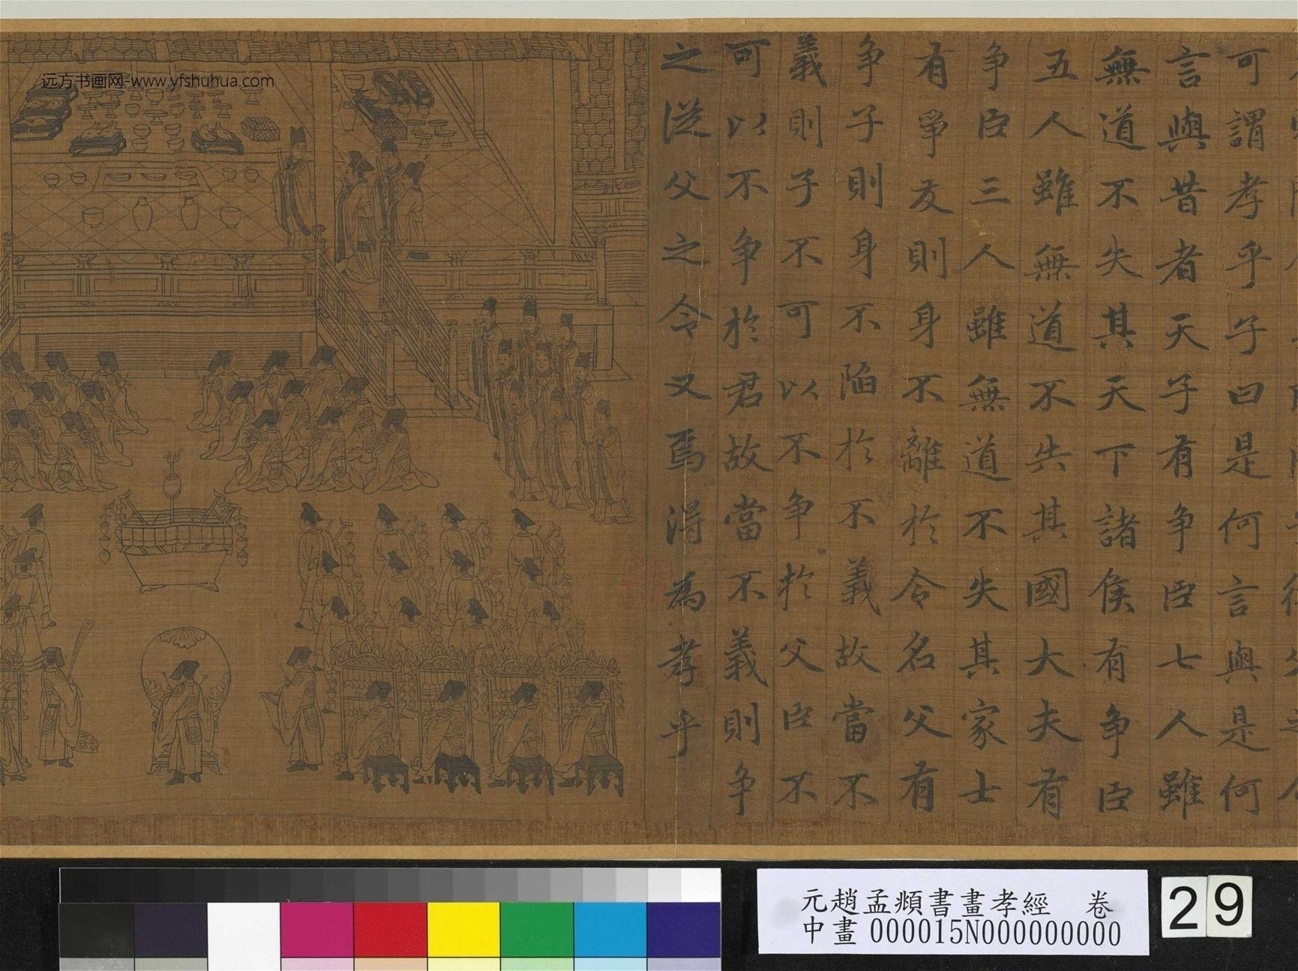 可謂孝乎子曰是何言與是何
言與昔者天子有争臣七人雖
無道不失其天下諸侯有争臣
五人雖無道不失其國大夫有
争臣三人雖無道不失其家士
有争友則身不離於令名父有
争子則身不陷於不義故當不
義則子不可以不争於父臣不
可以不争於君故當不義則争
之從父之令又焉得為孝乎
远方书画网-www.yfshuhua.com
元趙孟頫書畫孝經 卷
中畫 000015N000000000
29